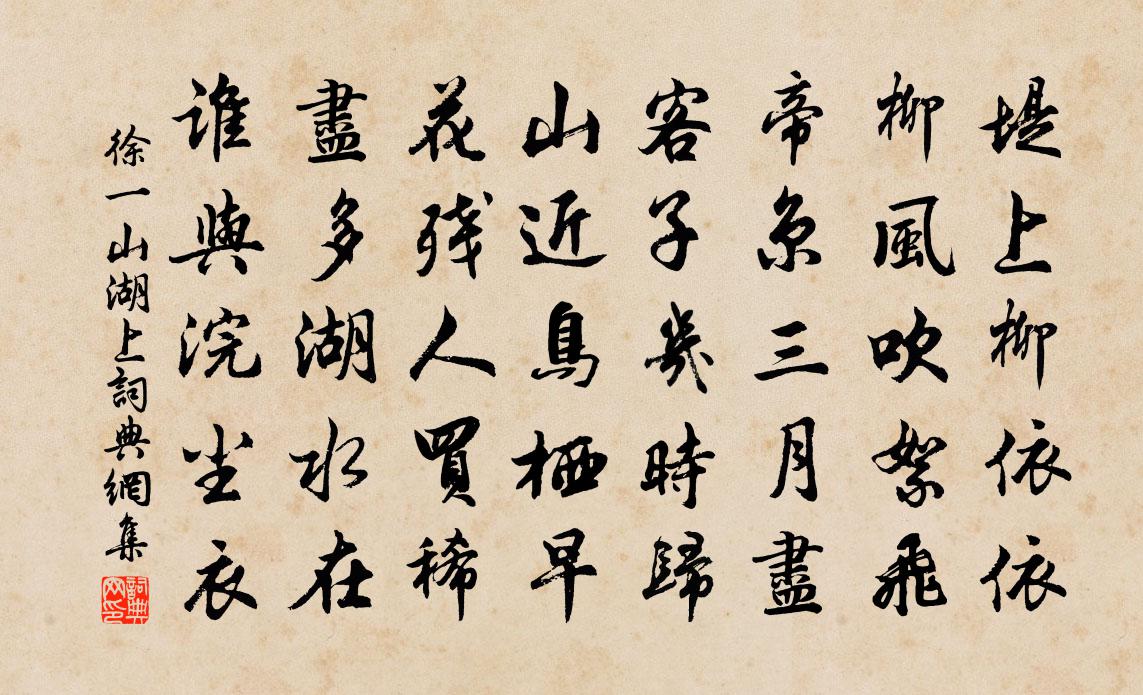 堤上柳依依
柳風吹絮飛
帝京三月盡
客子幾時歸
山近鳥栖早
花殘人買稀
盡多湖水在
誰與浣尘衣
徐一山湖上詞典網集
詞典网印